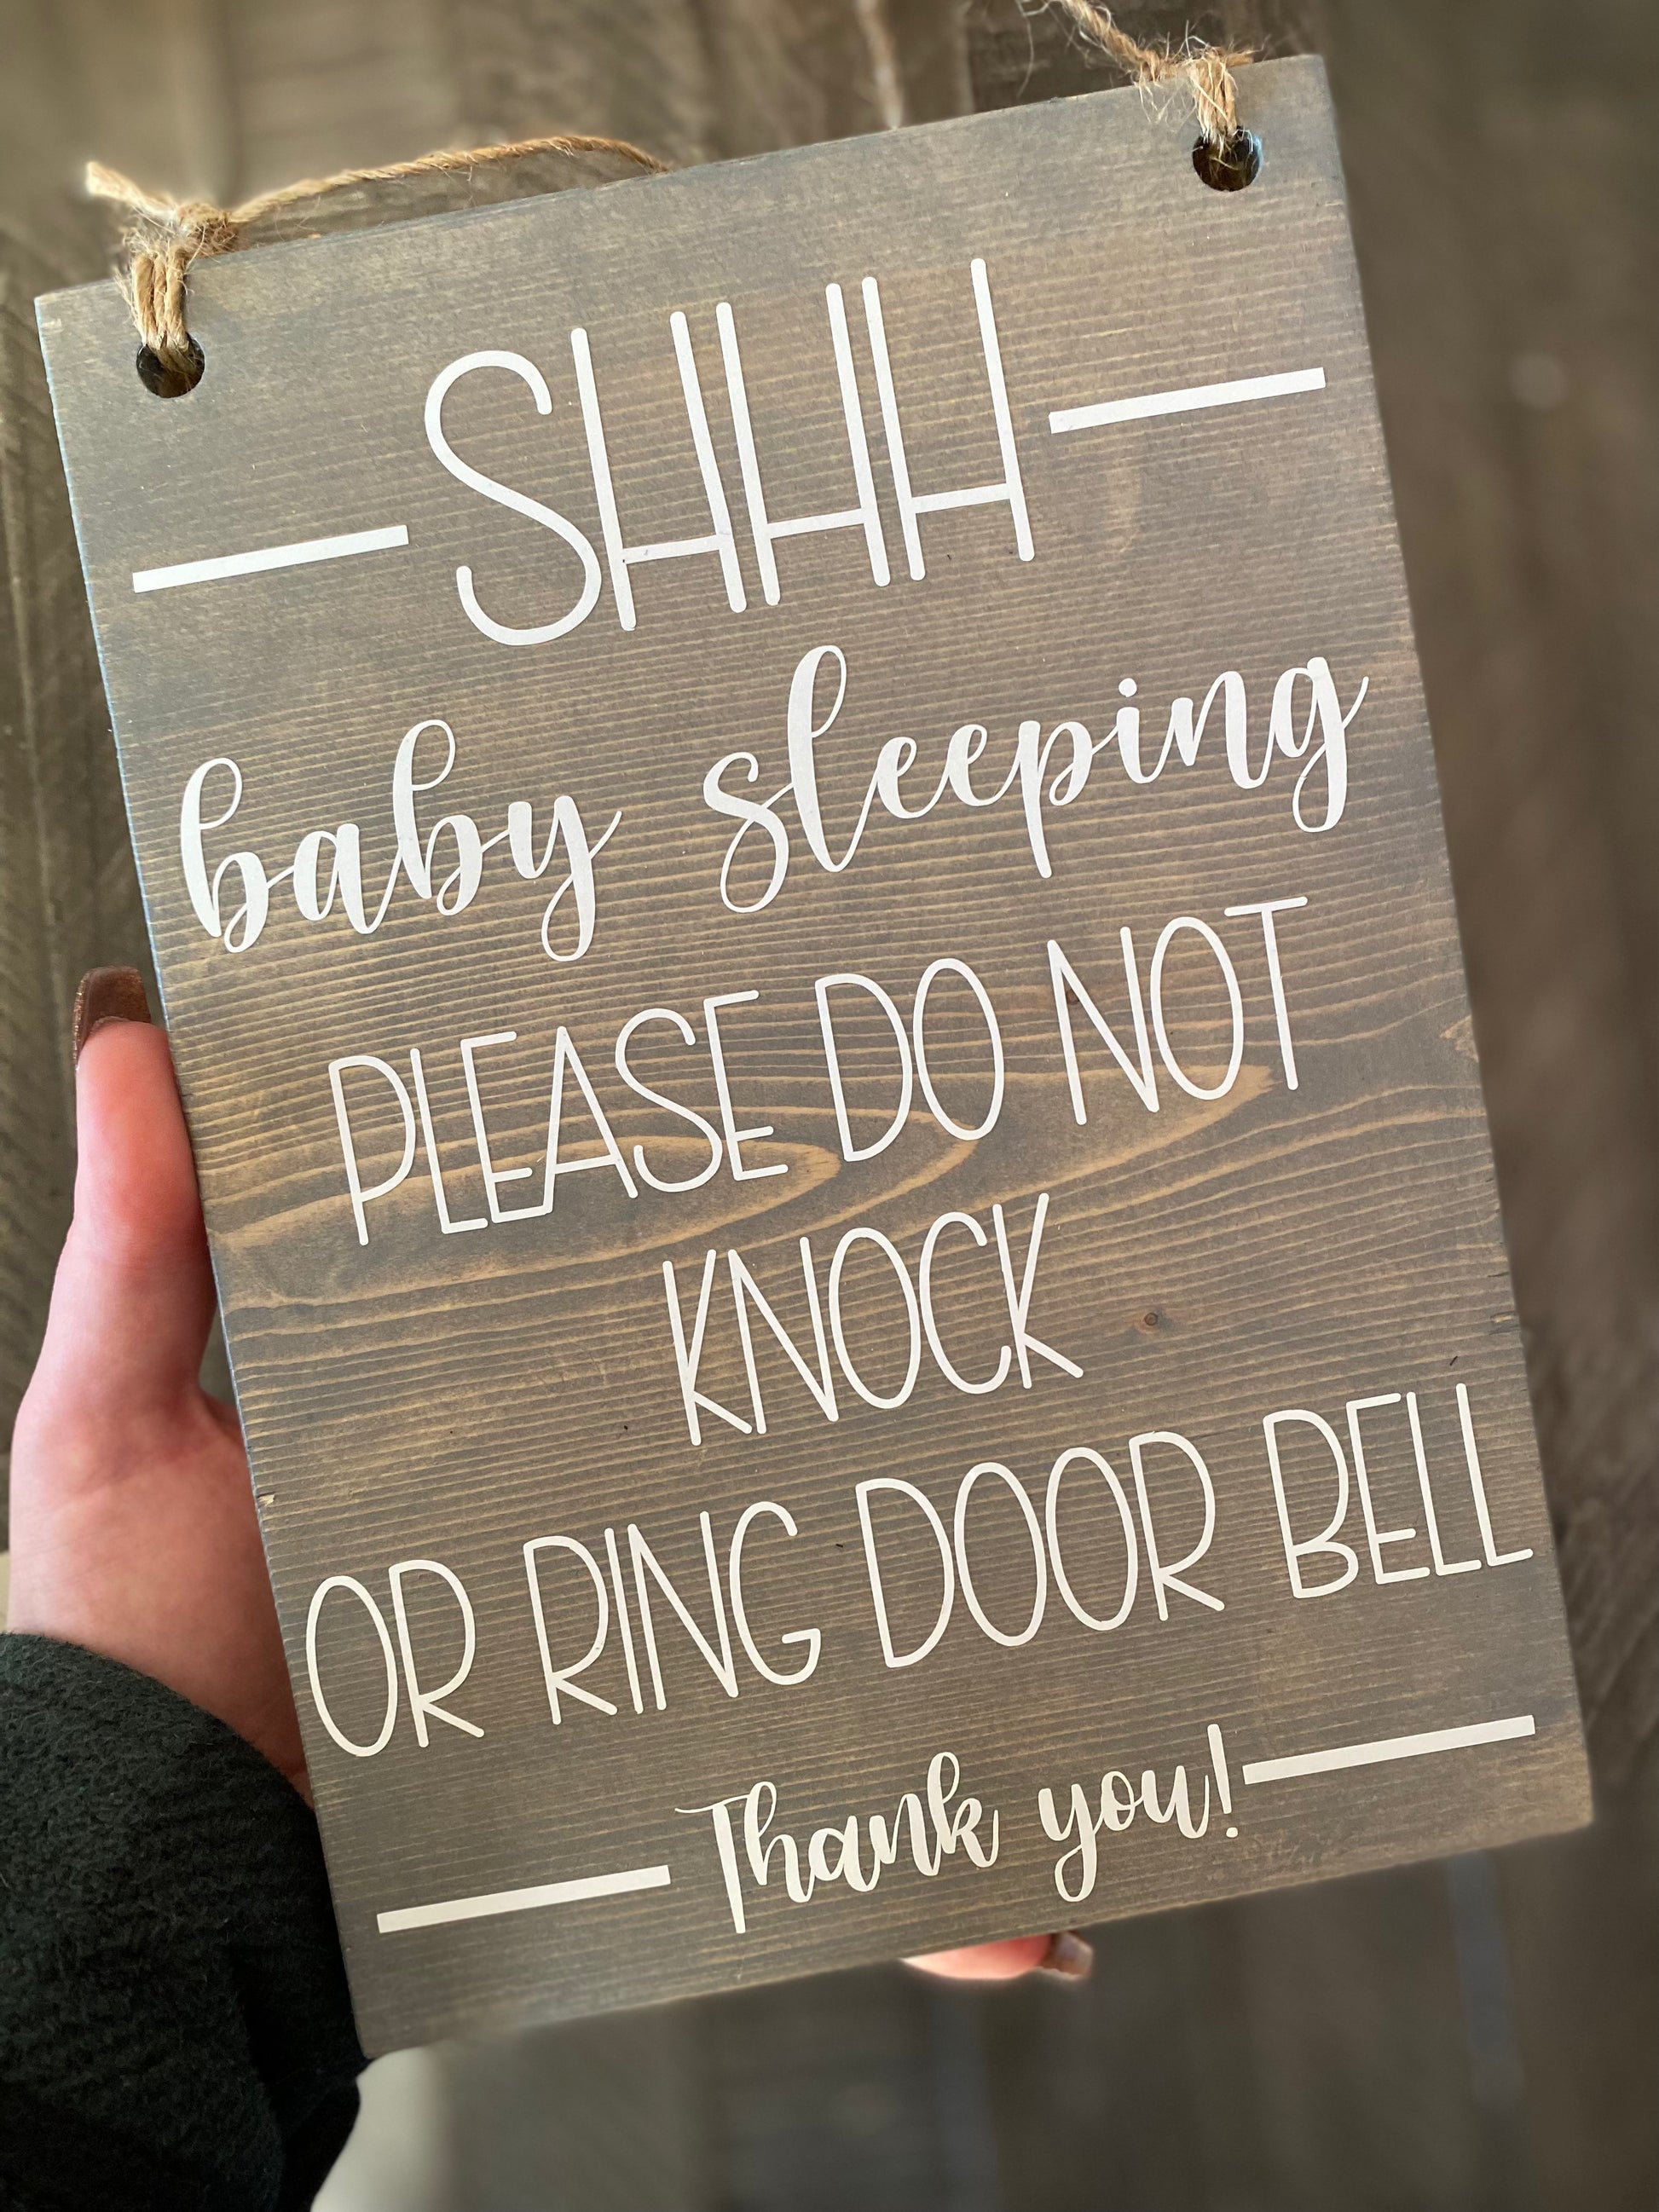 SHHH
baby sleeping
PLEASE DO NOT
KNOCK
OR RING DOOR BELL
Thank you!